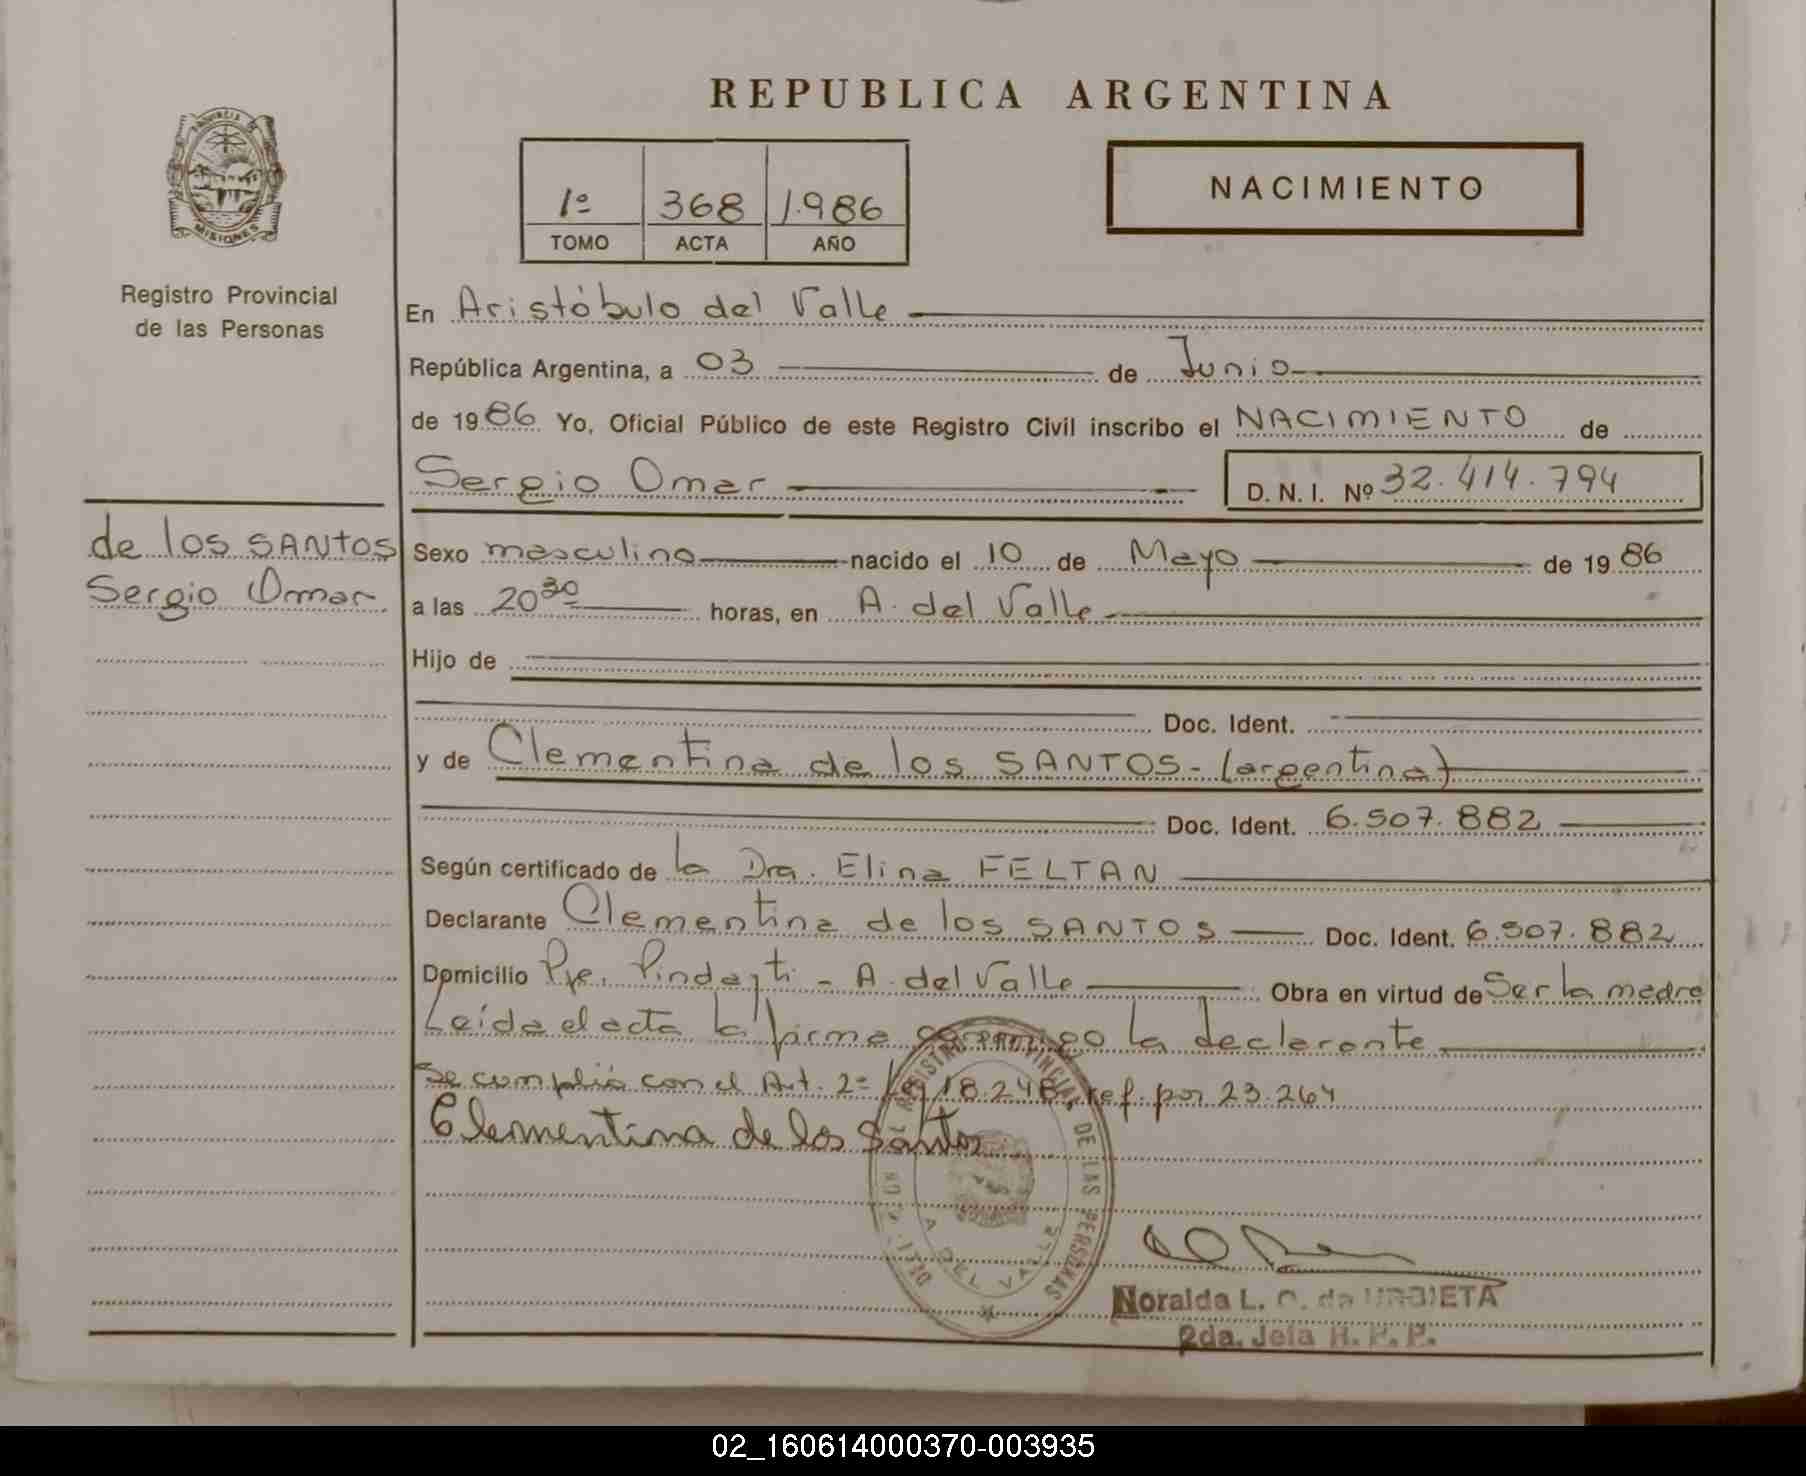 REPUBLICA ARGENTINA
PROVINCIA DE
MISIONES
Registro Provincial
de las Personas
1º 368 1.986
TOMO ACTA AÑO
NACIMIENTO
En Aristóbulo del Valle
República Argentina, a 03 de Junio
de 1986 Yo, Oficial Público de este Registro Civil inscribo el NACIMIENTO de
Sergio Omar D. N. I. Nº 32.414.794
de los SANTOS
Sergio Omar
Sexo masculino nacido el 10 de Mayo de 1986
a las 20 30 horas, en A. del Valle
Hijo de
Doc. Ident.
y de Clementina de los SANTOS - (argentina)
Doc. Ident. 6.507.882
Según certificado de la Dra. Elina FELTAN
Declarante Clementina de los SANTOS Doc. Ident. 6.507.882
Domicilio Pje. Pindayti - A. del Valle Obra en virtud de Ser la madre
Leída el acta la firma conmigo la declarante
Se cumplió con el Art. 2º Ley 18.248, ref. por 23.264
Clementina de los Santos
REGISTRO PROVINCIAL DE LAS PERSONAS
A. DEL VALLE
Noralda L. O. de URBIETA
2da. Jefa R. P. P.
02_160614000370-003935